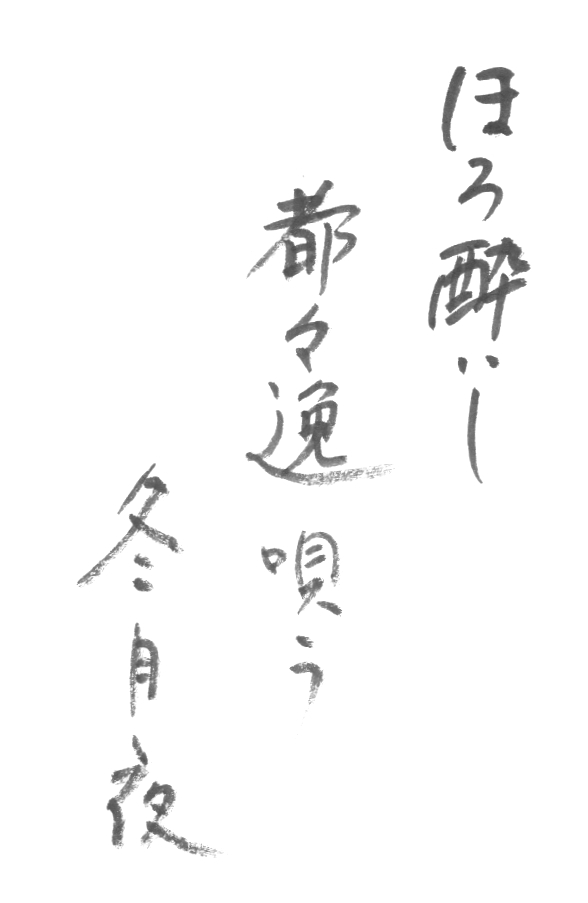 ほろ酔いし
都々逸唄う
冬月夜